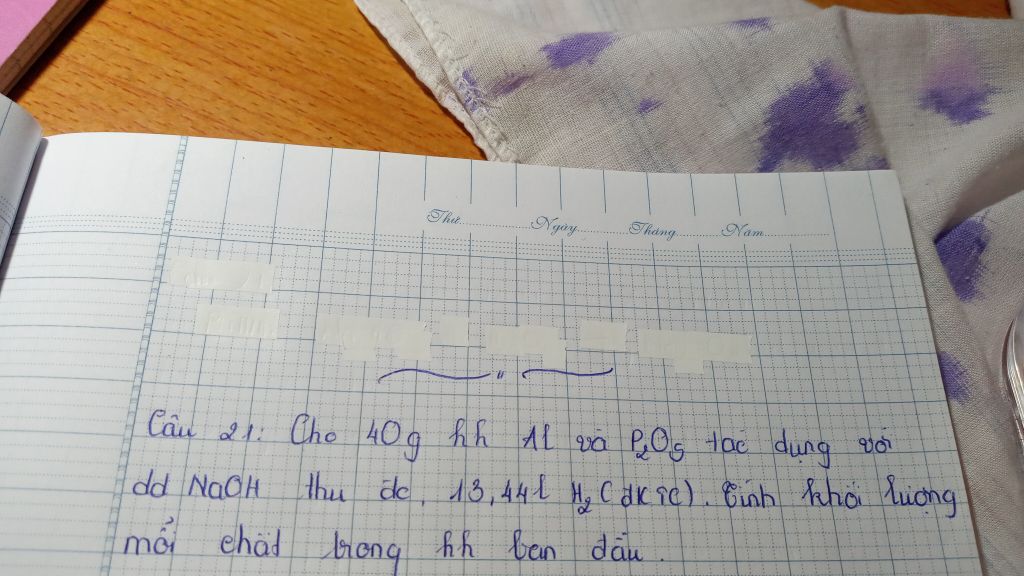 Thứ Ngày Tháng Năm
Câu 21: Cho 40g hh Al và P₂O₅ tác dụng với
dd NaOH thu đc 13,44l H₂ (đktc). Tính khối lượng
mỗi chất trong hh ban đầu.